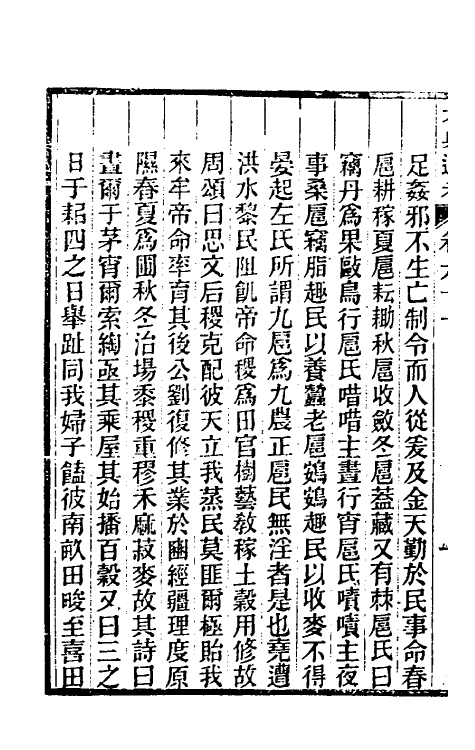 足姦邪不生亡制令而人從爰及金天勤於民事命春
扈耕稼夏扈耘耡秋扈收斂冬扈蓋藏又有棘扈氏曰
竊丹爲果敺鳥行扈氏唶唶主晝行宵扈氏嘖嘖主夜
事桑扈竊脂趣民以善蠶老扈鷃鷃趣民以收麥不得
晏起左氏所謂九扈爲九農正扈民無淫者是也堯遭
洪水黎民阻飢帝命稷爲田官樹藝敎稼土穀用修故
周頌曰思文后稷克配彼天立我蒸民莫匪爾極貽我
來牟帝命率育其後公劉復修其業於豳經疆理度原
隰春夏爲圃秋冬治場黍稷重穋禾麻菽麥故其詩曰
晝爾于茅宵爾索綯亟其乘屋其始播百穀又曰三之
日于耜四之日舉趾同我婦子饁彼南畝田畯至喜田